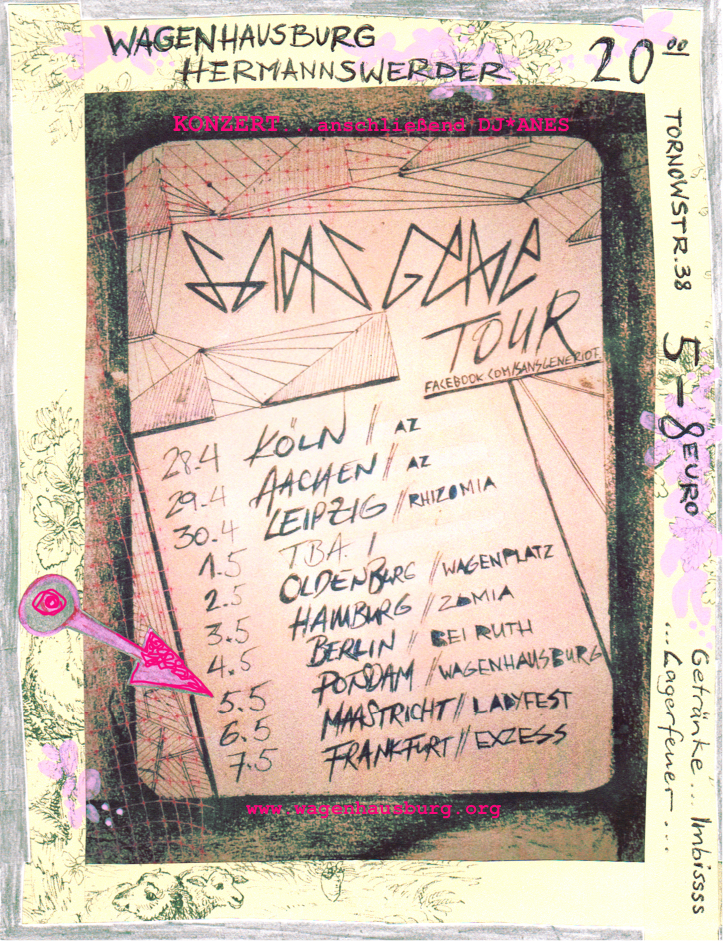 WAGENHAUSBURG
HERMANNSWERDER
20⁰⁰
KONZERT...anschließend DJ*ANES
SANS GENE
TOUR
FACEBOOK.COM/SANSGENERIOT
28.4 KÖLN // AZ
29.4 AACHEN // AZ
30.4 LEIPZIG // RHIZOMIA
1.5 TBA /
2.5 OLDENBURG // WAGENPLATZ
3.5 HAMBURG // ZOMIA
4.5 BERLIN // BEI RUTH
5.5 POTSDAM // WAGENHAUSBURG
6.5 MAASTRICHT // LADYFEST
7.5 FRANKFURT // EXZESS
www.wagenhausburg.org
TORNOWSTR.38
5-8 EURO
Getränke... Imbissss
...Lagerfeuer...